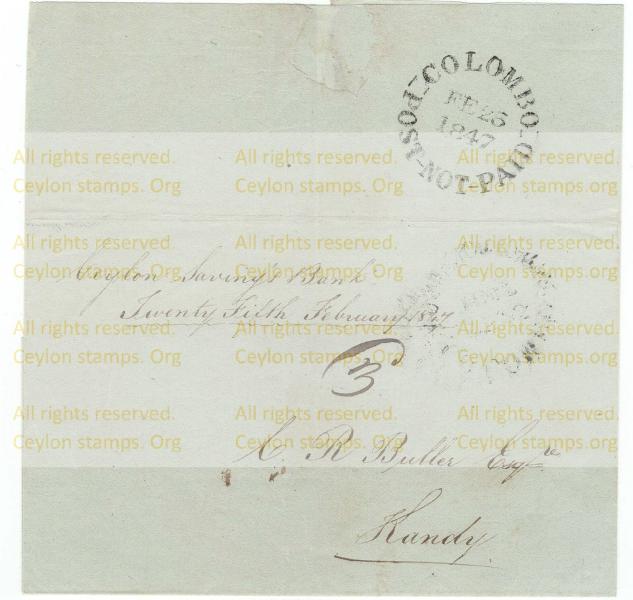 COLOMBO
POST-NOT-PAID
FE 25
1847
All rights reserved. All rights reserved. All rights reserved.
Ceylon stamps. Org Ceylon stamps. Org Ceylon stamps.org
All rights reserved. All rights reserved. All rights reserved.
Ceylon stamps. Org Ceylon stamps. Org Ceylon stamps.org
Ceylon Saving's Bank
Twenty Fifth February 1847
All rights reserved. All rights reserved. All rights reserved.
Ceylon stamps. Org Ceylon stamps. Org Ceylon stamps.org
3
All rights reserved. All rights reserved. All rights reserved.
Ceylon stamps. Org Ceylon stamps. Org Ceylon stamps.org
C. R. Buller Esqre
Kandy